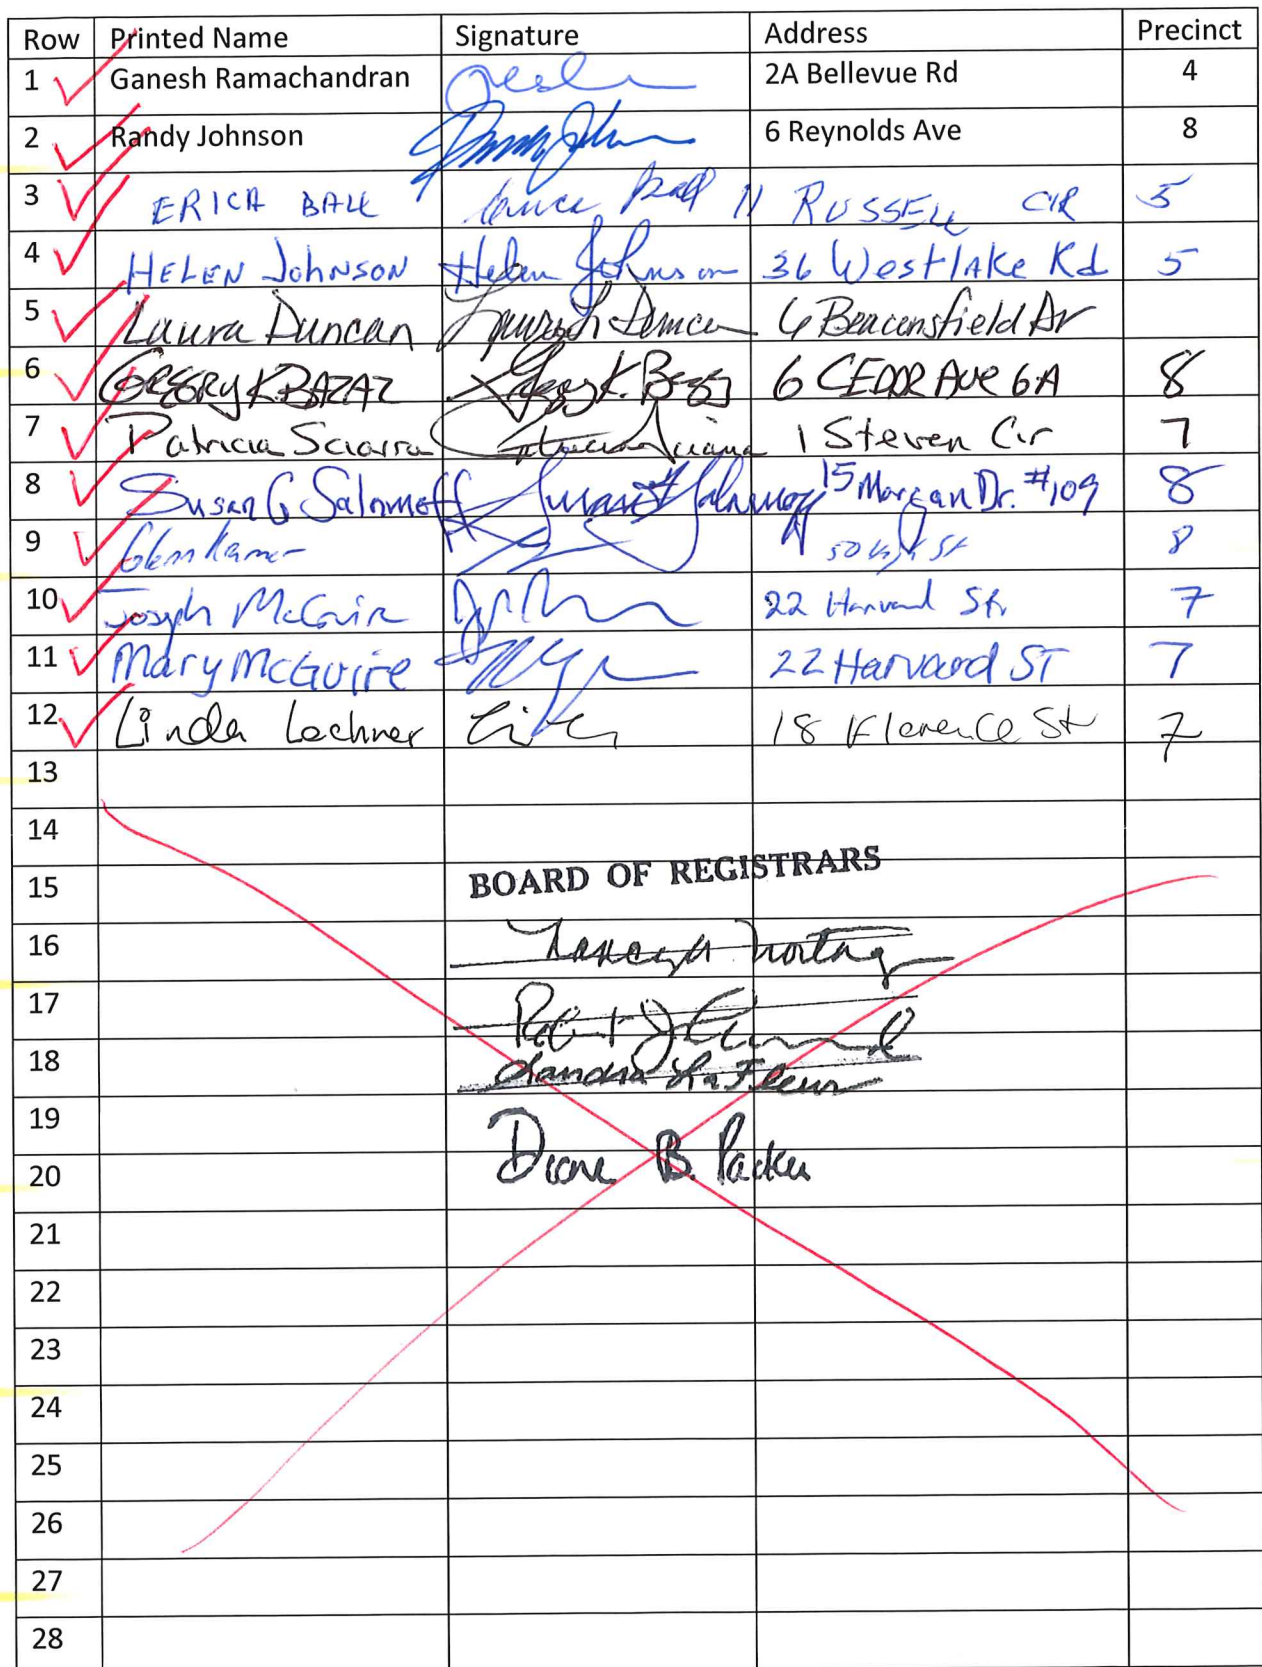 Row Printed Name Signature Address Precinct
1 Ganesh Ramachandran 2A Bellevue Rd 4
2 Randy Johnson 6 Reynolds Ave 8
3 ERICA BALL Erica Ball 11 RUSSELL CIR 5
4 HELEN JOHNSON Helen Johnson 36 Westlake Rd 5
5 Laura Duncan Duncan 6 Beaconsfield Dr
6 GREGORY K. BAZAZ K. 6 CEDAR AVE 6A 8
7 Patricia Sciarra 1 Steven Cir 7
8 Susan G Salomoff 15 Morgan Dr. #109 8
9 Glenn 50 St 8
10 Joseph McGuire 22 Harvard Str 7
11 Mary McGuire 22 Harvard ST 7
12 Linda Lochner 18 Florence St 7
13
14
15 BOARD OF REGISTRARS
16
17 Robert J
18 Sandra LaFleur
19
Diane B. Packer
20
21
22
23
24
25
26
27
28